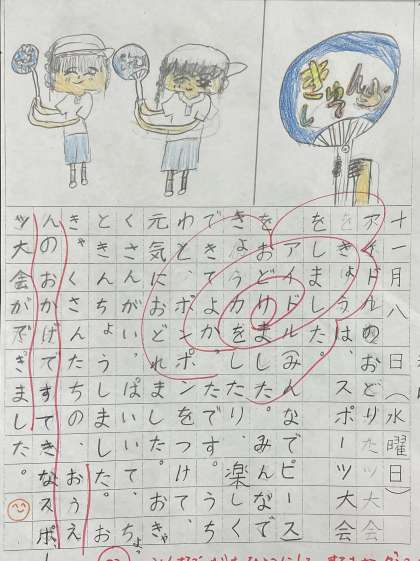 十一月八日(水曜日)
アイドルのおどり
きょうは、スポーツ大会
をしました。
アイドルみんなでピース
をおどりました。みんなで
きょう力をしたり、楽しく
できてよかったです。うち
わと、ボンポンをつけて、
元気におどれました。おきゃ
くさんがいっぱいいて、ちょっ
ときんちょうしました。お
きゃくさんたちの、おうえ
んのおかげですてきなスポー
ツ大会ができました。